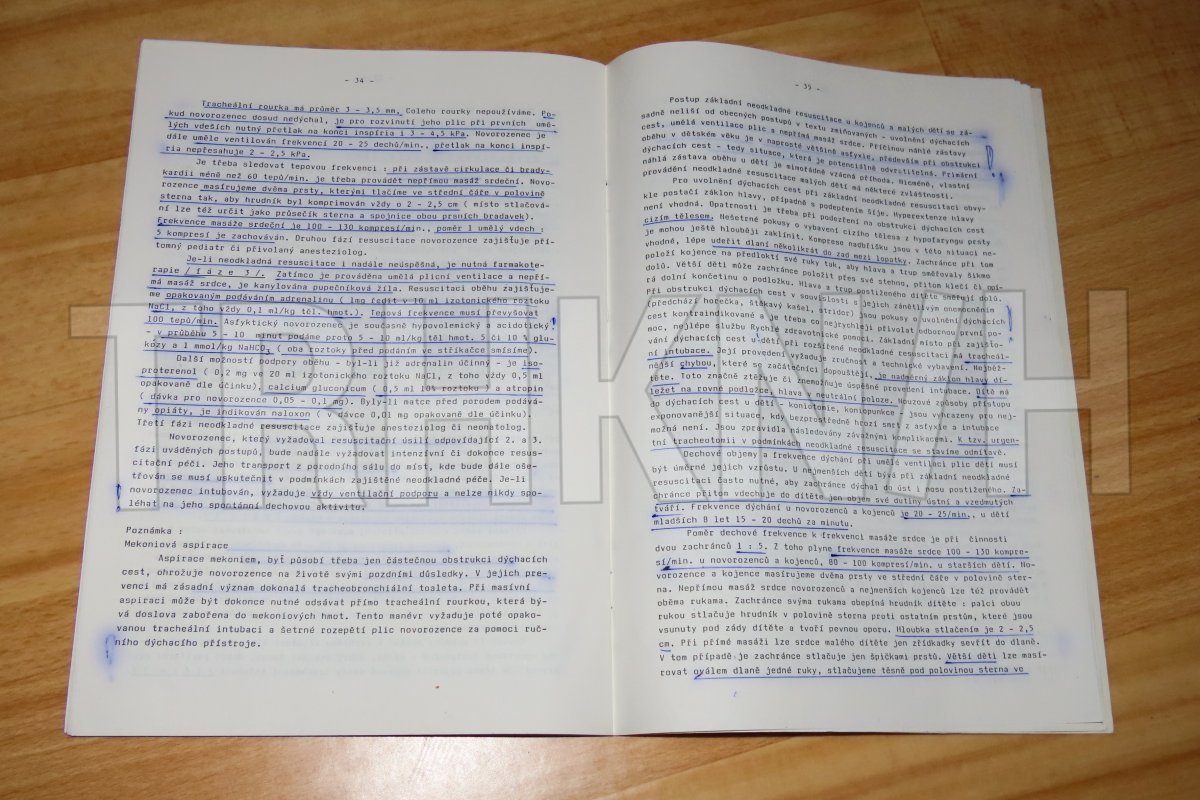 - 34 -
Tracheální rourka má průměr 3 - 3,5 mm. Coleho rourky nepoužíváme. Po-
kud novorozenec dosud nedýchal, je pro rozvinutí jeho plic při prvních umě-
lých vdeších nutný přetlak na konci inspíria i 3 - 4,5 kPa. Novorozenec je
dále uměle ventilován frekvencí 20 - 25 dechů/min., přetlak na konci inspí-
ria nepřesahuje 2 - 2,5 kPa.
Je třeba sledovat tepovou frekvenci : při zástavě cirkulace či brady-
kardii méně než 60 tepů/min. je třeba provádět nepřímou masáž srdeční. Novo-
rozence masírujeme dvěma prsty, kterými tlačíme ve střední čáře v polovině
sterna tak, aby hrudník byl komprimován vždy o 2 - 2,5 cm ( místo stlačová-
ní lze též určit jako průsečík sterna a spojnice obou prsních bradavek).
Frekvence masáže srdeční je 100 - 130 kompresí/min., poměr 1 umělý vdech :
5 kompresí je zachován. Druhou fází resuscitace novorozence zajišťuje pří-
tomný pediatr či přivolaný anesteziolog.
Je-li neodkladná resuscitace i nadále neúspěšná, je nutná farmakote-
rapie / f á z e 3 /. Zatímco je prováděna umělá plicní ventilace a nepří-
má masáž srdce, je kanylována pupečníková žíla. Resuscitaci oběhu zajišťuje-
me opakovaným podáváním adrenalinu ( 1mg ředit v 10 ml izotonického roztoku
NaCl, z toho vždy 0,1 ml/kg těl. hmot.). Tepová frekvence musí převyšovat
100 tepů/min. Asfyktický novorozenec je současně hypovolemický a acidotický
- v průběhu 5 - 10 minut podáme proto 5 - 10 ml/kg těl hmot. 5 či 10 % glu-
kózy a 1 mmol/kg NaHCO3 ( oba roztoky před podáním ve stříkačce smísíme).
Další možností podpory oběhu - byl-li již adrenalin účinný - je iso-
proterenol ( 0,2 mg ve 20 ml izotonického roztoku NaCl, z toho vždy 0,5 ml
opakovaně dle účinku), calcium gluconicum ( 0,5 ml 10% roztoku ) a atropin
( dávka pro novorozence 0,05 - 0,1 mg). Byly-li matce před porodem podává-
ny opiáty, je indikován naloxon ( v dávce 0,01 mg opakovaně dle účinku).
Třetí fázi neodkladné resuscitace zajišťuje anesteziolog či neonatolog.
Novorozenec, který vyžadoval resuscitační úsilí odpovídající 2. a 3.
fázi uváděných postupů, bude nadále vyžadovat intenzívní či dokonce resus-
citační péči. Jeho transport z porodního sálu do míst, kde bude dále oše-
třován se musí uskutečnit v podmínkách zajištěné neodkladné péče. Je-li
novorozenec intubován, vyžaduje vždy ventilační podporu a nelze nikdy spo-
léhat na jeho spontánní dechovou aktivitu.
Poznámka :
Mekoniová aspirace
Aspirace mekoniem, byť působí třeba jen částečnou obstrukci dýchacích
cest, ohrožuje novorozence na životě svými pozdními důsledky. V jejich pre-
venci má zásadní význam dokonalá tracheobronchiální toaleta. Při masívní
aspiraci může být dokonce nutné odsávat přímo tracheální rourkou, která bý-
vá doslova zabořena do mekoniových hmot. Tento manévr vyžaduje poté opako-
vanou tracheální intubaci a šetrné rozepětí plic novorozence za pomoci ruč-
ního dýchacího přístroje.
- 35 -
Postup základní neodkladné resuscitace u kojenců a malých dětí se zá-
sadně neliší od obecných postupů v textu zmiňovaných - uvolnění dýchacích
cest, umělá ventilace plic a nepřímá masáž srdce. Příčinou náhlé zástavy
oběhu v dětském věku je v naprosté většině asfyxie, především při obstrukci
dýchacích cest - tedy situace, která je potenciálně odvratitelná. Primární
náhlá zástava oběhu u dětí je mimořádně vzácná příhoda. Nicméně, vlastní
provádění neodkladné resuscitace malých dětí má některé zvláštnosti.
Pro uvolnění dýchacích cest při základní neodkladné resuscitaci obvy-
kle postačí záklon hlavy, případně s podepřením šíje. Hyperextenze hlavy
není vhodná. Opatrnosti je třeba při podezření na obstrukci dýchacích cest
cizím tělesem. Nešetrné pokusy o vybavení cizího tělesa z hypofaryngu prsty
je mohou ještě hlouběji zaklínit. Komprese nadbřišku jsou v této situaci ne-
vhodné, lépe udeřit dlaní několikrát do zad mezi lopatky. Zachránce při tom
položí kojence na předloktí své ruky tak, aby hlava a trup směřovaly šikmo
dolů. Větší dětí může zachránce položit přes své stehno, přitom klečí či opí-
rá dolní končetinu o podložku. Hlava a trup postiženého dítěte směřují dolů.
Při obstrukci dýchacích cest v souvislosti s jejich zánětlivým onemocněním
(předchází horečka, štěkavý kašel, stridor) jsou pokusy o uvolnění dýchacích
cest kontraindikované a je třeba co nejrychleji přivolat odbornou první po-
moc, nejlépe službu Rychlé zdravotnické pomoci. Základní místo při zajišťo-
vání dýchacích cest u dětí při rozšířené neodkladné resuscitaci má tracheál-
ní intubace. Její provedení vyžaduje zručnost a technické vybavení. Nejběž-
nější chybou, které se začátečníci dopouštějí, je nadměrný záklon hlavy dí-
těte. Toto značně ztěžuje či znemožňuje úspěšné provedení intubace. Dítě má
ležet na rovné podložce, hlava v neutrální poloze. Nouzové způsoby přístupu
do dýchacích cest u dětí - koniotomie, koniopunkce - jsou vyhrazeny pro nej-
exponovanější situace, kdy bezprostředně hrozí smrt z asfyxie a intubace
možná není. Jsou zpravidla následovány závažnými komplikacemi. K tzv. urgen-
tní tracheotomii v podmínkách neodkladné resuscitace se stavíme odmítavě.
Dechové objemy a frekvence dýchání při umělé ventilaci plic dětí musí
být úměrné jejich vzrůstu. U nejmenších dětí bývá při základní neodkladné
resuscitaci často nutné, aby zachránce dýchal do úst i nosu postiženého. Za-
chránce přitom vdechuje do dítěte jen objem své dutiny ústní a vzedmutých
tváří. Frekvence dýchání u novorozenců a kojenců je 20 - 25/min., u dětí
mladších 8 let 15 - 20 dechů za minutu.
Poměr dechové frekvence k frekvenci masáže srdce je při činnosti
dvou zachránců 1 : 5. Z toho plyne frekvence masáže srdce 100 - 130 kompre-
sí/min. u novorozenců a kojenců, 80 - 100 kompresí/min. u starších dětí. No-
vorozence a kojence masírujeme dvěma prsty ve střední čáře v polovině ster-
na. Nepřímou masáž srdce novorozenců a nejmenších kojenců lze též provádět
oběma rukama. Zachránce svýma rukama obepíná hrudník dítěte : palci obou
rukou stlačuje hrudník v polovině sterna proti ostatním prstům, které jsou
vsunuty pod zády dítěte a tvoří pevnou oporu. Hloubka stlačením je 2 - 2,5
cm. Při přímé masáži lze srdce malého dítěte jen zřídkakdy sevřít do dlaně.
V tom případě je zachránce stlačuje jen špičkami prstů. Větší děti lze masí-
rovat oválem dlaně jedné ruky, stlačujeme těsně pod polovinou sterna ve
TRIKKVH